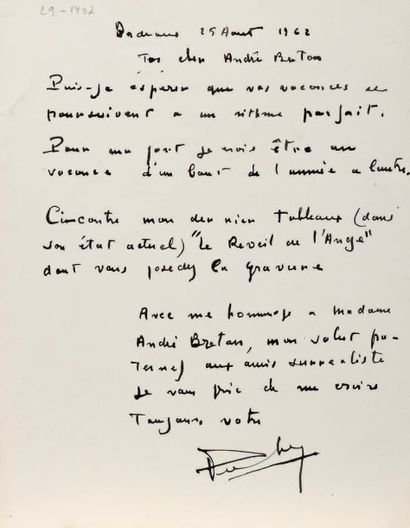 29-1902
Bordeaux 25 Aout 1962
Tres cher André Breton
Puis-je éspérer que vos vacances se
poursuivent a un rithme parfait.
Pour ma part je vois être en
vacance d'un bout de l'année a l'autre.
Cincontre mon dernien tableaux (dans
son état actuel) "le Reveil de l'Ange"
dont vous posedez la gravure
Avec me hommage a madame
André Breton, mon salut fra-
ternel aux amis surrealiste
Je vous prie de me croire
Toujours votre